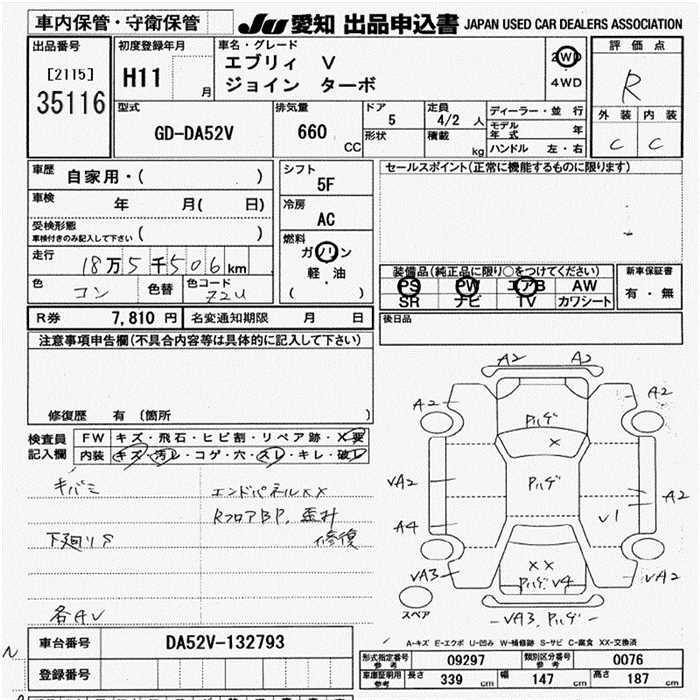 車内保管・守衛保管
JU 愛知 出品申込書 JAPAN USED CAR DEALERS ASSOCIATION
出品番号
[2115]
35116
初度登録年月
H11
月
車名・グレード
エブリィ V
ジョイン ターボ
2WD
・
4WD
評価点
R
外装 内装
C C
型式
GD-DA52V
排気量
660
CC
ドア
5
形状
定員
4/2 人
積載
kg
ディーラー・並行
モデル年式 年
ハンドル 左・右
車歴 自家用・( )
車検 年 月( 日)
受検形態
車検付きのみ記入して下さい ( )
走行 18万5千506km
色 コン 色替 色コード Z2U
シフト
5F
冷房
AC
燃料
ガソリン
軽・油
( )
セールスポイント(正常に機能するものに限ります)
装備品(純正品に限り○をつけてください)
PS PW エアB AW
SR ナビ TV カワシート
新車保証書
有・無
R券 7,810 円 名変通知期限 月 日
後日品
注意事項申告欄(不具合内容等は具体的に記入して下さい)
修復歴 有(箇所 )
検査員
記入欄
FW キズ・飛石・ヒビ割・リペア跡・X要
内装 キズ・汚レ・コゲ・穴・スレ・キレ・破レ
キバミ エンドパネルXX
RフロアBP、歪み
下廻りS 修復
各AV
A2 A2
A2 A2
ハルゲ
X
VA2 ハルゲ A2
V1
A4
XX
VA3 ハルゲV4 VA2
スペア
VA3、ハルゲ
A-キズ E-エクボ U-凹み W-補修跡 S-サビ C-腐食 XX-交換済
N
車台番号 DA52V-132793
登録番号
形式指定番号
参考
09297
類別区分番号
参考
0076
車庫証明用
参考
長さ 339 cm 幅 147 cm 高さ 187 cm